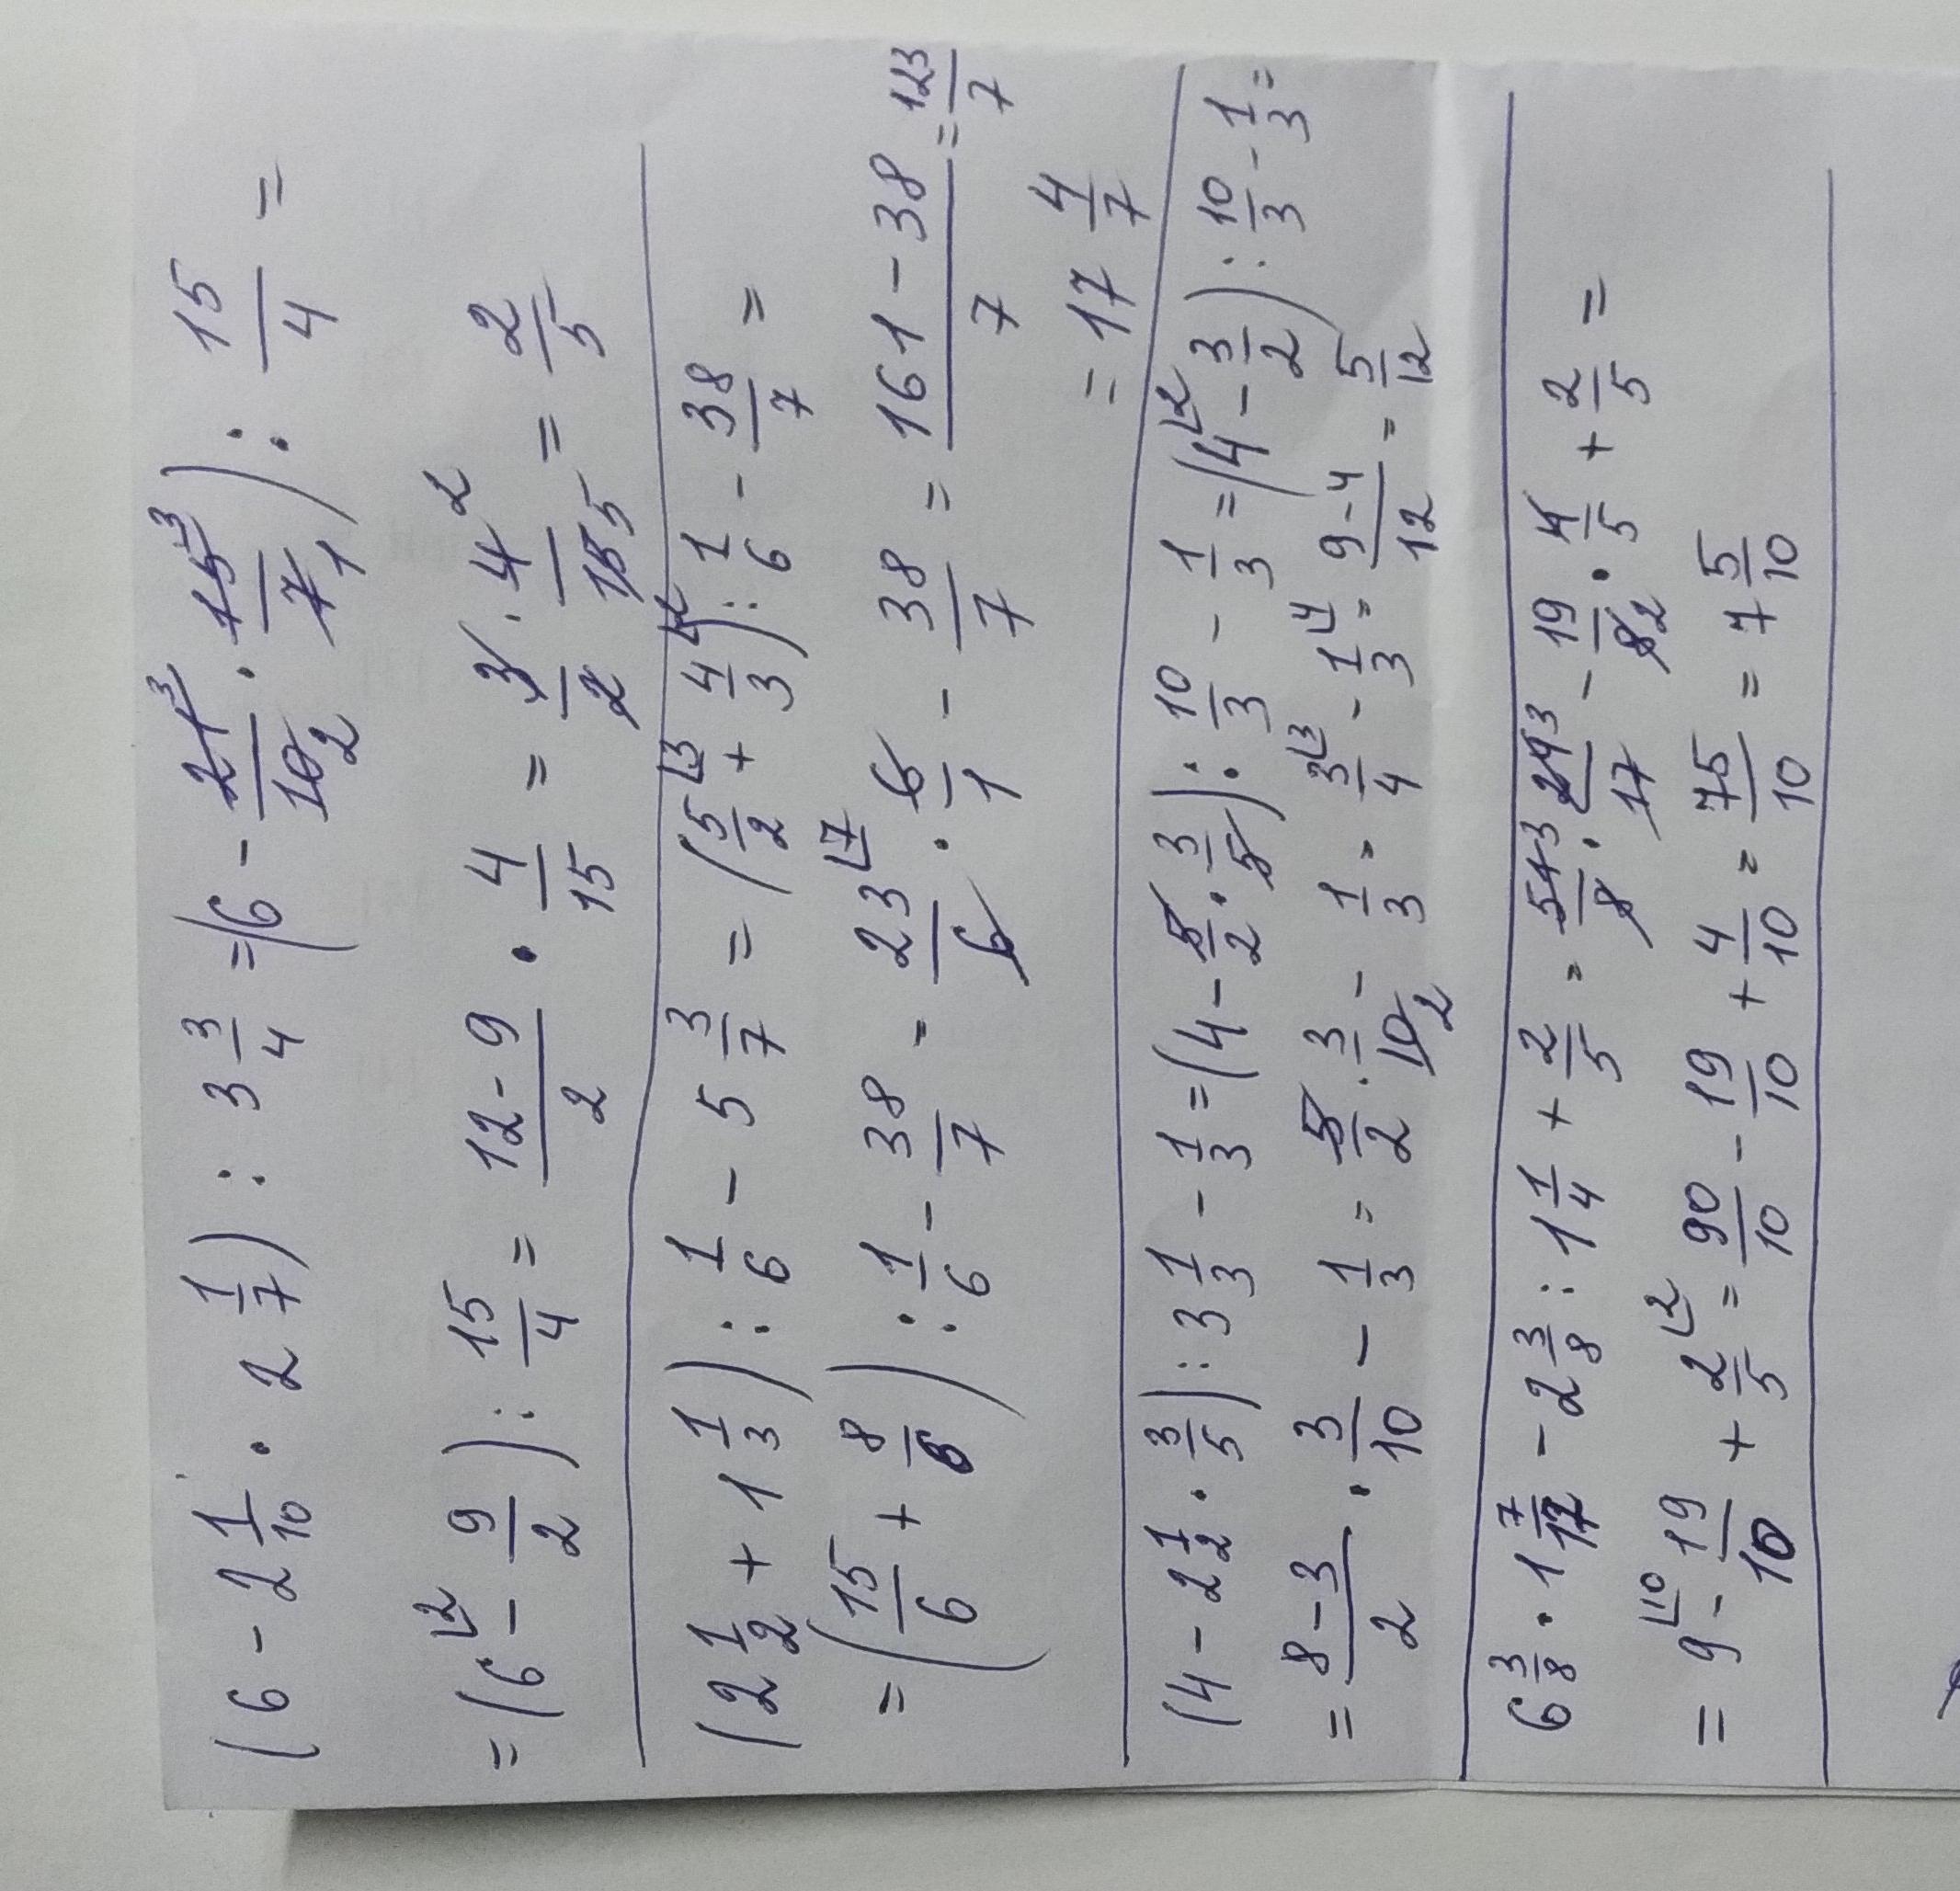 (6 - 2 1/10 · 2 1/7) : 3 3/4 = (6 - 21³/10₂ · 15³/7₁) : 15/4 =
= (6⌊2 - 9/2) : 15/4 = 12-9/2 · 4/15 = 3·4²/2·15₅ = 2/5
(2 1/2 + 1 1/3) : 1/6 - 5 3/7 = (5/2⌊3 + 4/3⌊2) : 1/6 - 38/7 =
= (15/6 + 8/6) : 1/6 - 38/7 = 23⌊7/6 · 6/1 - 38/7 = 161-38/7 = 123/7
= 17 4/7
(4 - 2 1/2 · 3/5) : 3 1/3 - 1/3 = (4 - 5/2 · 3/5) : 10/3 - 1/3 = (4⌊2 - 3/2) : 10/3 - 1/3 =
= 8-3/2 · 3/10 - 1/3 = 5/2 · 3/10₂ - 1/3 = 3/4⌊3 - 1/3⌊4 = 9-4/12 = 5/12
6 3/8 · 1 7/17 - 2 3/8 : 1 1/4 + 2/5 = 51³/8 · 24³/17 - 19/8₂ · 4/5 + 2/5 =
= 9⌊10 - 19/10 + 2/5⌊2 = 90/10 - 19/10 + 4/10 = 75/10 = 7 5/10